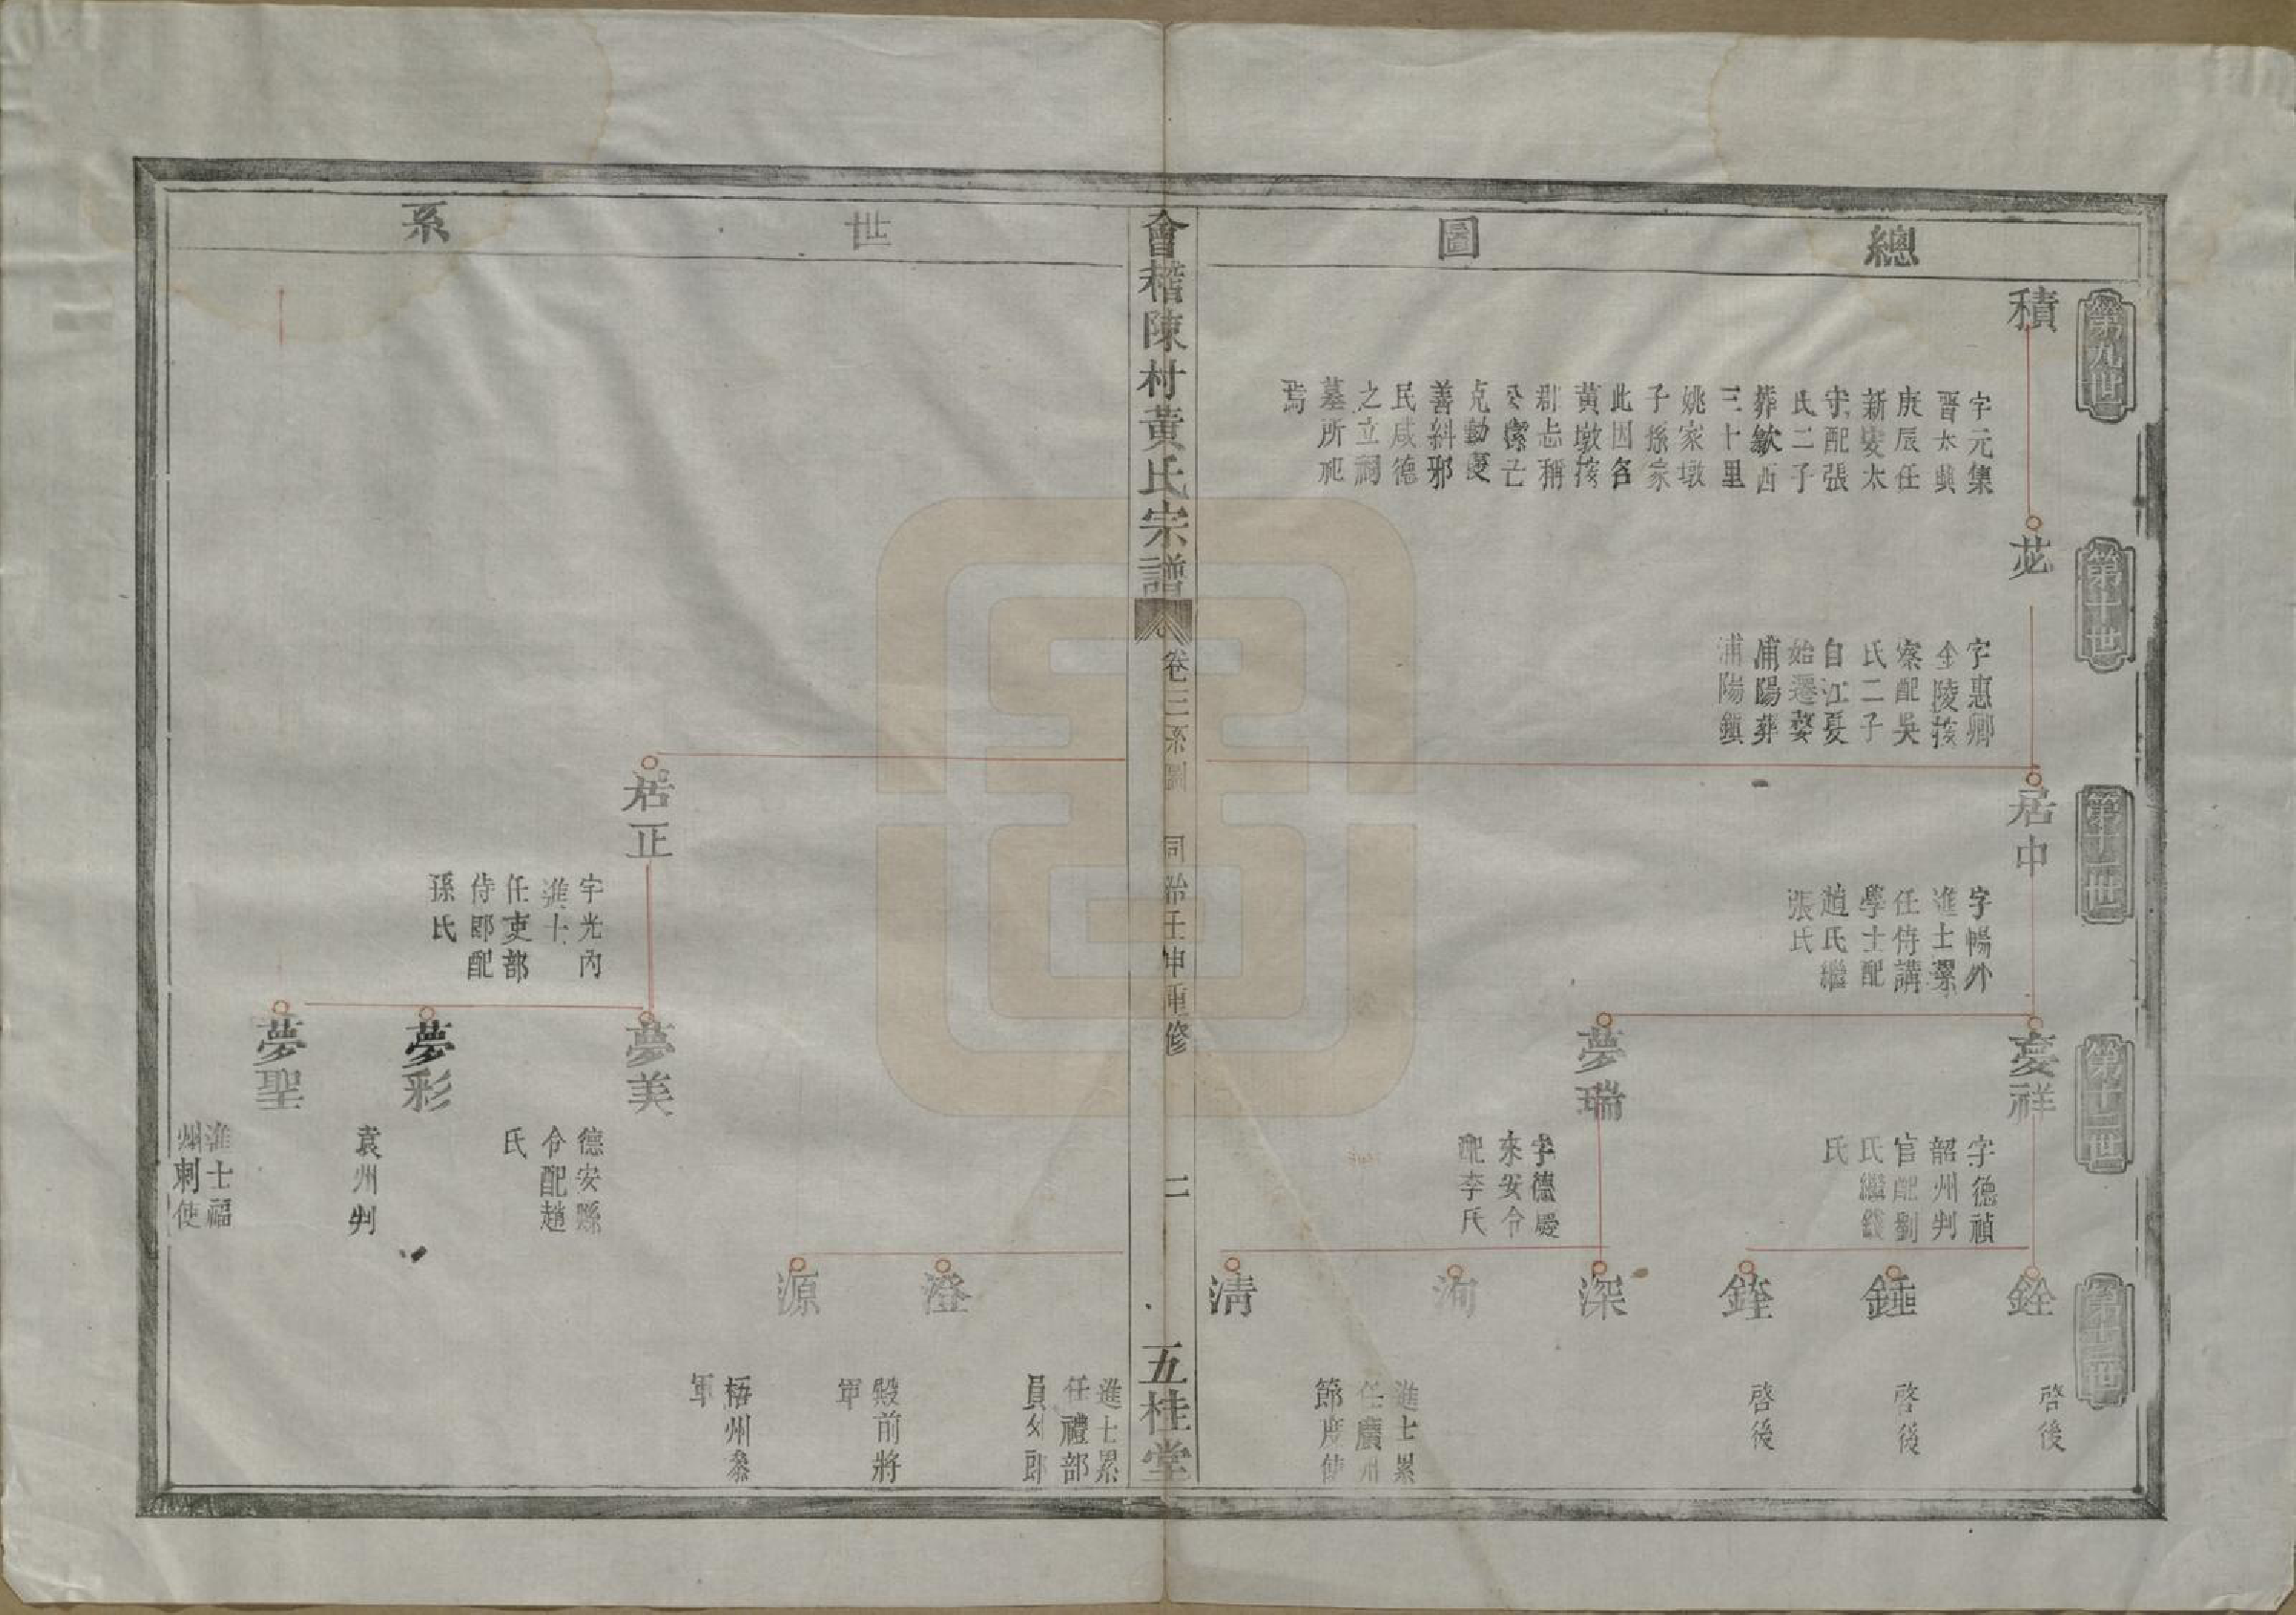 總
圖
第九世
積
字元集
晉太興
庚辰任
新安太
守配張
氏二子
葬歙西
三十里
姚家墩
子孫家
此因名
黃墩按
郡志稱
公潔己
克勤憂
善糾邪
民咸德
之立祠
墓所祀
焉
第十世
苾
字惠卿
金陵按
察配吳
氏二子
自江夏
始遷婺
浦陽葬
浦陽鎮
第十一世
居中
字暢外
進士累
任侍講
學士配
趙氏繼
張氏
第十二世
夢祥
字德禎
韶州判
官配劉
氏繼錢
氏
夢瑞
字德慶
來安令
配李氏
第十三世
銓
啓後
錘
啓後
銍
啓後
深
洵
進士累
任廣州
節度使
清
會稽陳村黃氏宗譜
卷三系圖
同治壬申重修
二
五桂堂
世
系
進士累
任禮部
員外郎
澄
殿前將
軍
源
梧州參
軍
居正
字光內
進士
任吏部
侍郎配
孫氏
夢美
德安縣
令配趙
氏
夢彩
袁州判
夢聖
進士福
州刺使